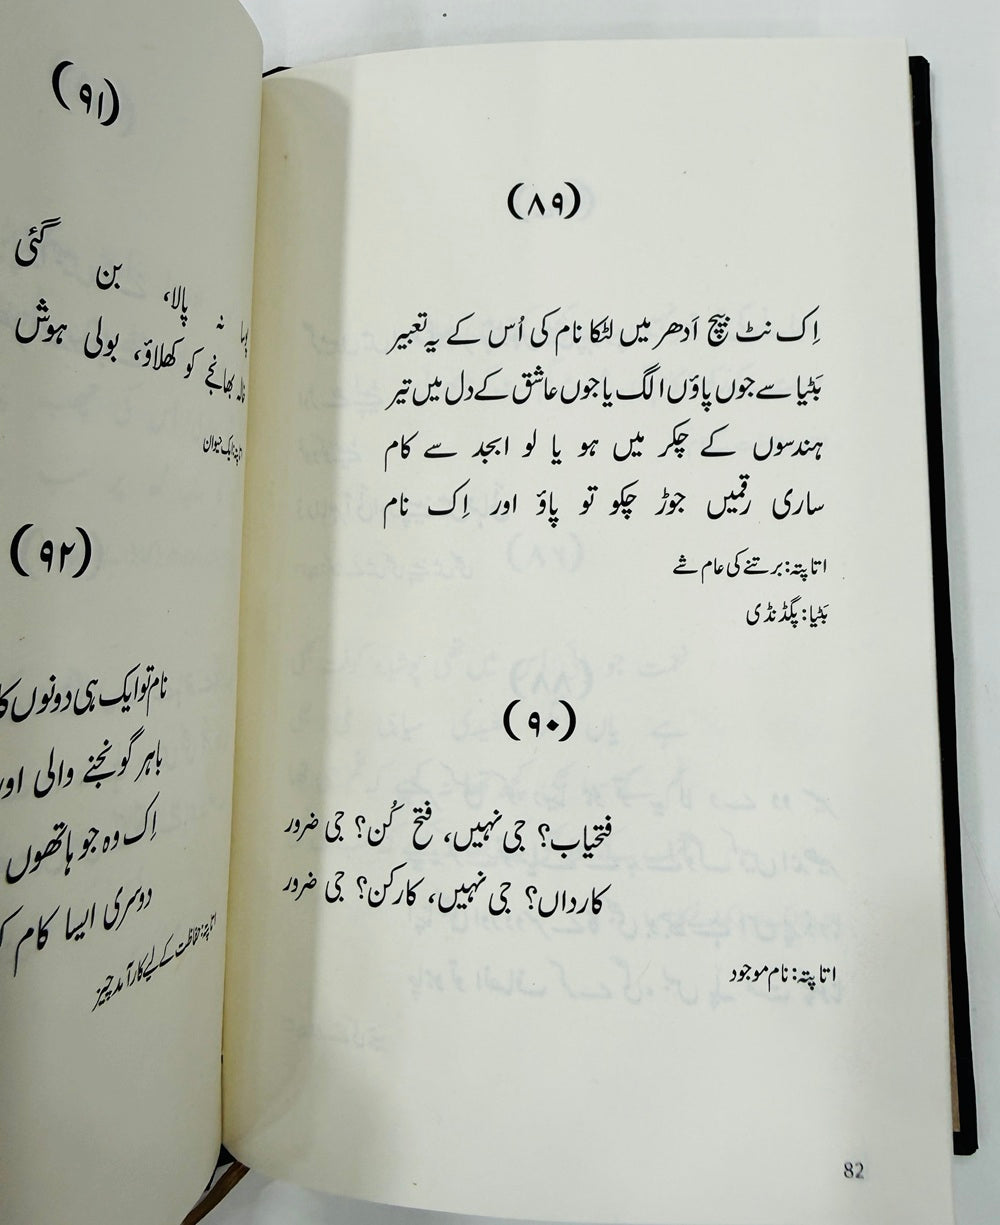 (۸۹)
اِک نٹ بیچ اَدھر میں لٹکا نام کی اُس کے یہ تعبیر
بَٹیا سے جوں پاؤں الگ یا جوں عاشق کے دل میں تیر
ہندسوں کے چکر میں ہو یا لو ابجد سے کام
ساری رقمیں جوڑ چکو تو پاؤ اور اِک نام
اتا پتہ: برتنے کی عام شے
بَٹیا: پگڈنڈی
(۹۰)
فتحیاب؟ جی نہیں، فتح کُن؟ جی ضرور
کارداں؟ جی نہیں، کارکن؟ جی ضرور
اتا پتہ: نام موجود
82
(۹۱)
نہ پالا، بن گئی
بھانجے کو کھلاؤ، بولی ہوش
اتا پتہ: ایک حیوان
(۹۲)
نام تو ایک ہی دونوں کا
باہر گونجنے والی اور
اِک وہ جو ہاتھوں
دوسری ایسا کام
اتا پتہ: حفاظت کے لیے کارآمد چیز